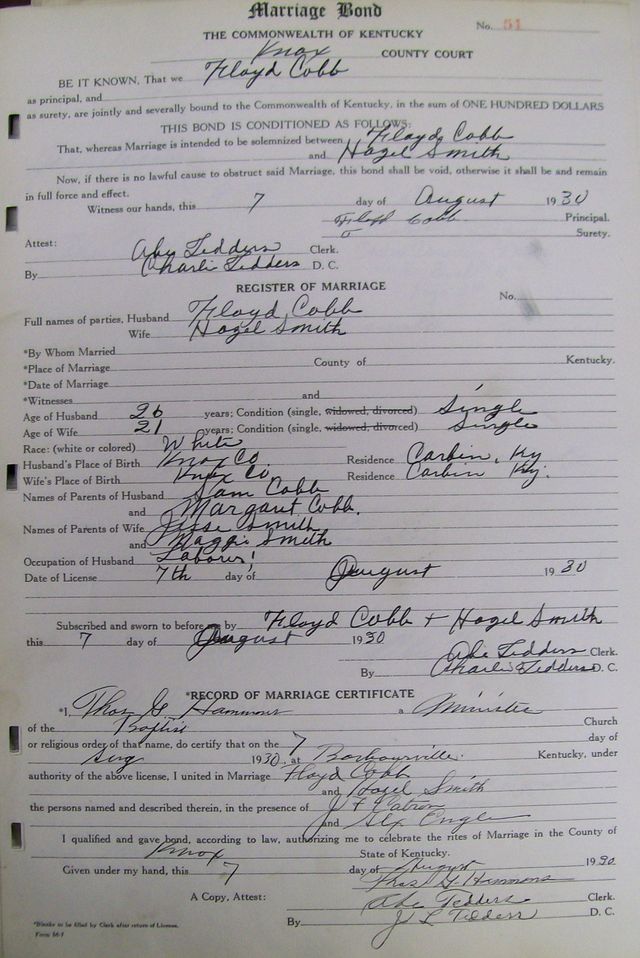 Marriage Bond
No. 51
THE COMMONWEALTH OF KENTUCKY
Knox COUNTY COURT
BE IT KNOWN, That we Floyd Cobb
as principal, and
as surety, are jointly and severally bound to the Commonwealth of Kentucky, in the sum of ONE HUNDRED DOLLARS
THIS BOND IS CONDITIONED AS FOLLOWS:
That, whereas Marriage is intended to be solemnized between Floyd Cobb
and Hazel Smith
Now, if there is no lawful cause to obstruct said Marriage, this bond shall be void, otherwise it shall be and remain
in full force and effect.
Witness our hands, this 7 day of August 1930
Floyd Cobb Principal.
Surety.
Attest:
Abe Tedders Clerk.
By Charli Tedders D. C.
REGISTER OF MARRIAGE
No.
Full names of parties, Husband Floyd Cobb
Wife Hazel Smith
*By Whom Married
*Place of Marriage County of Kentucky.
*Date of Marriage
*Witnesses and
Age of Husband 26 years; Condition (single, widowed, divorced) Single
Age of Wife 21 years; Condition (single, widowed, divorced) Single
Race: (white or colored) White
Husband's Place of Birth Knox Co Residence Corbin, Ky
Wife's Place of Birth Knox Co Residence Corbin Ky.
Names of Parents of Husband Sam Cobb
and Margaret Cobb.
Names of Parents of Wife Jesse Smith
and Maggie Smith
Occupation of Husband Laborer
Date of License 7th day of August 1930
Subscribed and sworn to before me by Floyd Cobb + Hazel Smith
this 7 day of August 1930
Abe Tedders Clerk.
By Charli Tedders D. C.
*RECORD OF MARRIAGE CERTIFICATE
*I, Thos G. Hammons a Minister
of the Baptist Church
or religious order of that name, do certify that on the 7 day of
Aug 1930, at Barbourville. Kentucky, under
authority of the above license, I united in Marriage Floyd Cobb
and Hazel Smith
the persons named and described therein, in the presence of J F Catron
and Alex Engle
I qualified and gave bond, according to law, authorizing me to celebrate the rites of Marriage in the County of
Knox State of Kentucky.
Given under my hand, this 7 day of August 1930
Thos G. Hammons
A Copy, Attest: Abe Tedders Clerk.
By J L Tedders D. C.
*Blanks to be filled by Clerk after return of License.
Form 66-1